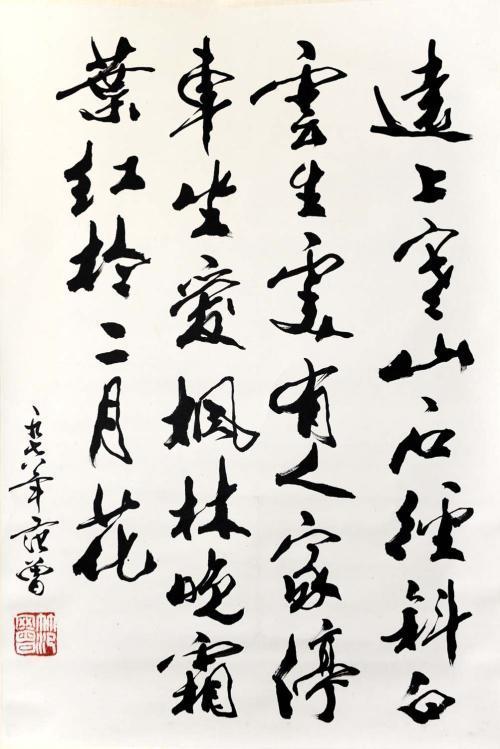 遠上寒山石徑斜白
雲生處有人家停
車坐愛楓林晚霜
葉紅於二月花
一九七八年范曾